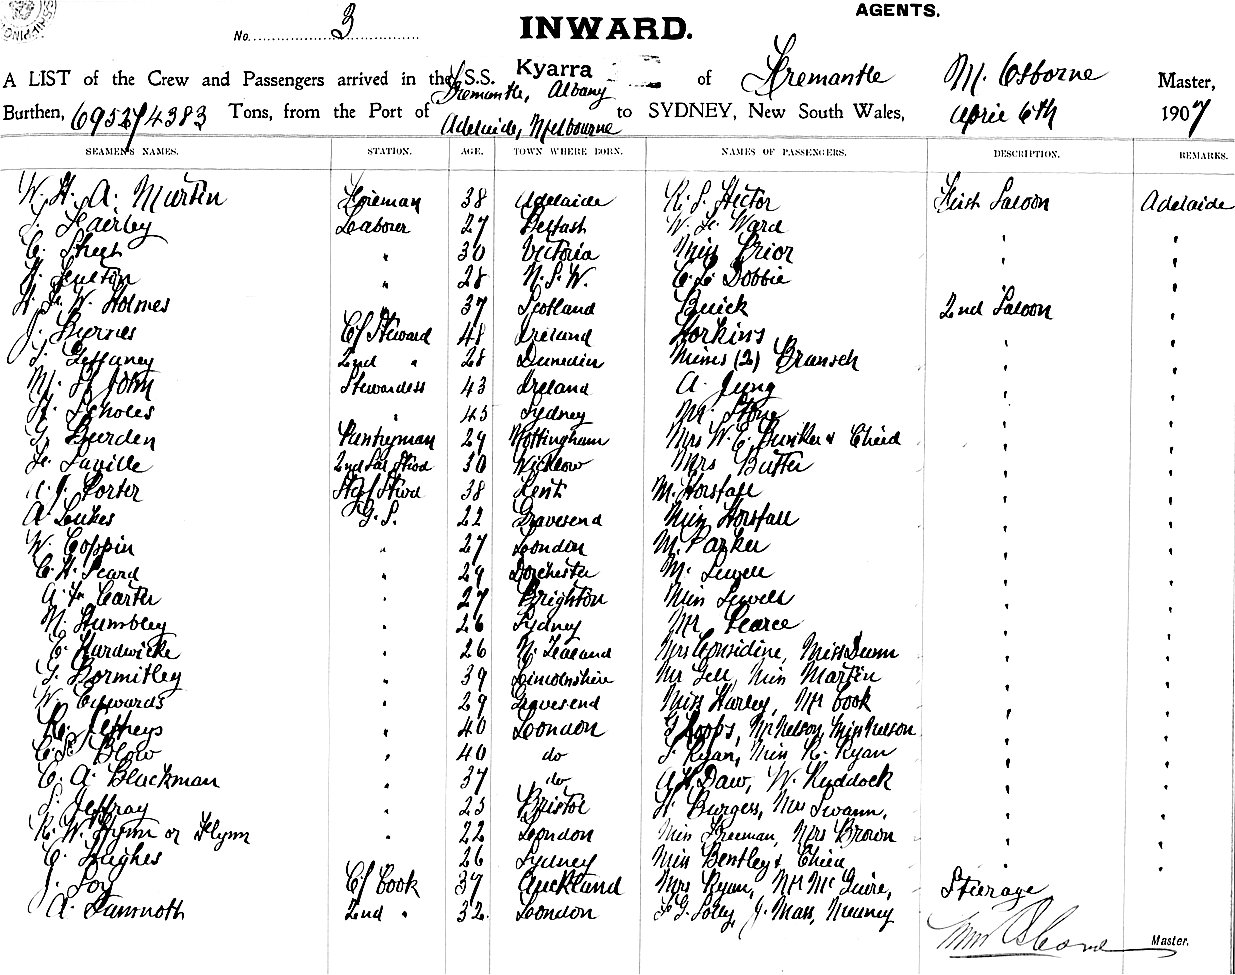 AGENTS.
No. 3 INWARD.
A LIST of the Crew and Passengers arrived in the S.S. Kyarra of Fremantle M. Osborne Master,
Fremantle, Albany
Burthen, 6952/4383 Tons, from the Port of Adelaide, Melbourne to SYDNEY, New South Wales, April 6th 1907
SEAMEN'S NAMES. STATION. AGE. TOWN WHERE BORN. NAMES OF PASSENGERS. DESCRIPTION. REMARKS.
W. H. A. Martin Fireman 38 Adelaide R. S. Hector First Saloon Adelaide
Fairley Labourer 27 Belfast Ward " "
" 30 Victoria Miss Prior " "
Fulton " 28 N. S. W. Dobbie " "
W. Holmes 37 Scotland Buick 2nd Saloon "
J. Byrnes Cf Steward 48 Ireland Horkins " "
2nd " 28 Dunedin Misses (2) Bransch " "
John Stewardess 43 Ireland A. Jung " "
Scholes " 45 Sydney Mr. Stone " "
Burden Pantryman 29 Nottingham Mrs W. E. & Child " "
Saville 2nd Sal Stwd 30 Wicklow Mrs Butter " "
A. J. Porter Stwd 38 Kent M. Horsfall " "
A Lukes G. S. 22 Gravesend Miss Horsfall " "
W. Coppin " 27 London M. Parker " "
C. H. Peard " 29 Dorchester M. Sewell " "
Carter " 27 Brighton Miss Sewell " "
Humbley " 26 Sydney Mr Pearce " "
E. Hardwicke " 26 N. Zealand Mrs Considine, Miss Dunn " "
G. Bormitley " 39 Lincolnshire Mr Gell, Miss Martin " "
W. Edwards " 29 Gravesend Miss Harley, Mr Cook " "
R. Jeffreys " 40 London Mr Nelson, Miss Nelson " "
Blow " 40 do Ryan, Miss K. Ryan " "
C. A. Blackman " 37 do Daw, W. Ruddock " "
Jeffray " 25 Bristol H. Burgess, Mrs Swann, " "
R. W. Flynn or Flynn " 22 London Miss Freeman, Mrs Brown " "
C. Hughes " 26 Sydney Miss Bentley & Child " "
J. Foy Cf Cook 37 Auckland Mrs Ryan, Mr McGuire, Steerage
A. 2nd " 32 London
Wm Osborne Master.